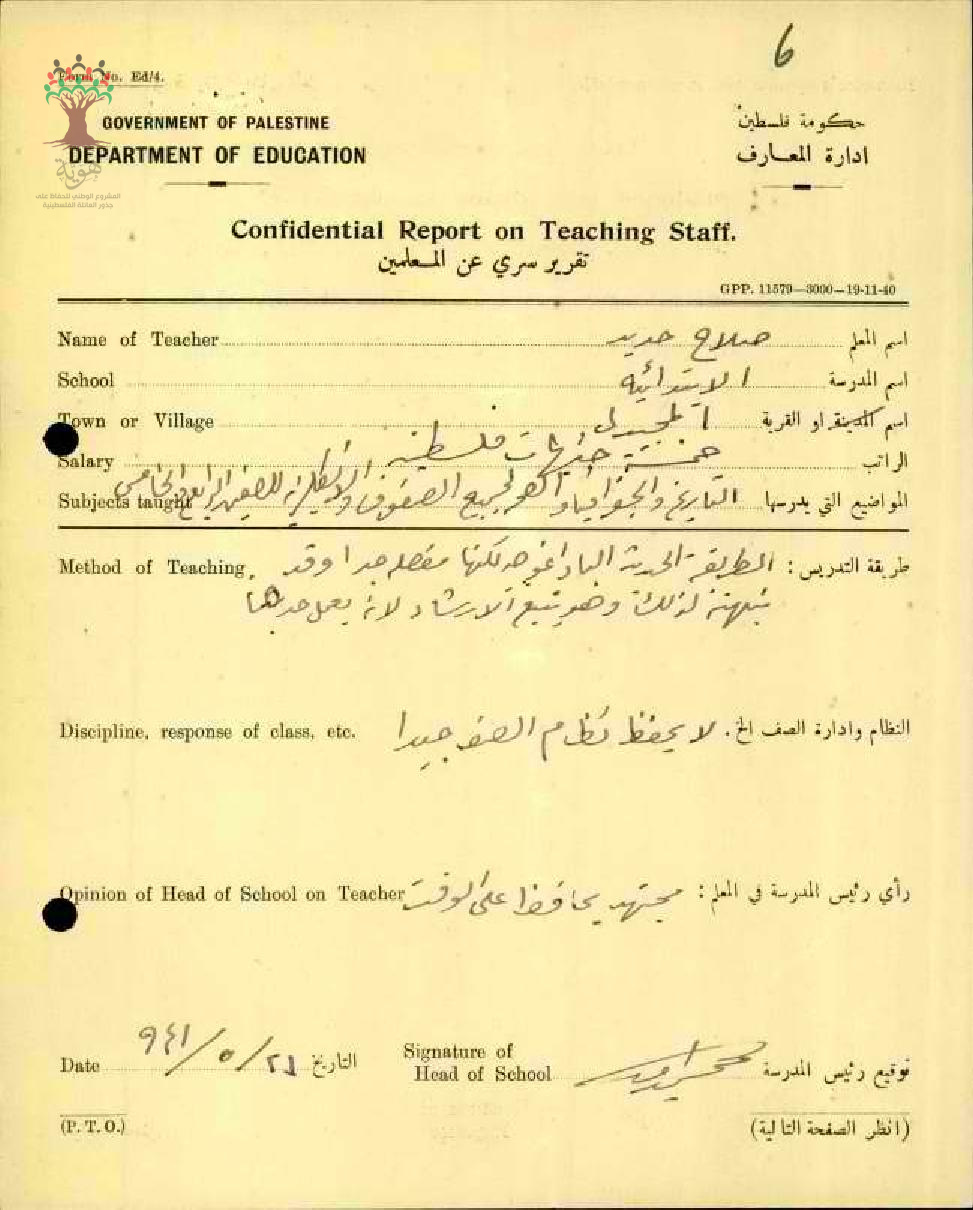 6
Form No. Ed/4.
هوية
المشروع الوطني للحفاظ على
جذور العائلة الفلسطينية
GOVERNMENT OF PALESTINE
حكومة فلسطين
DEPARTMENT OF EDUCATION
ادارة المعارف
Confidential Report on Teaching Staff.
تقرير سري عن المعلمين
GPP. 11579—3000—19-11-40
Name of Teacher صلاح حديد اسم المعلم
School الابتدائيه اسم المدرسة
Town or Village المجيدل اسم المدينة او القرية
Salary خمسة جنيهات فلسطينيه الراتب
Subjects taught التاريخ والجغرافيا لجميع الصفوف والانكليزية للصفين الرابع والخامس المواضيع التي يدرسها
Method of Teaching. الطريقة الحديثة لكنها مفصله جدا وقد طريقة التدريس :
نبهته لذلك وهو يتبع الارشاد لانه يعمل
Discipline, response of class, etc. لا يحفظ نظام الصف جيدا النظام وادارة الصف الخ.
Opinion of Head of School on Teacher مجتهد يحافظ على الوقت رأي رئيس المدرسة في المعلم :
Date ٩٤١/٥/٢١ التاريخ
Signature of
Head of School توقيع رئيس المدرسة
(P. T. O.) (انظر الصفحة التالية)